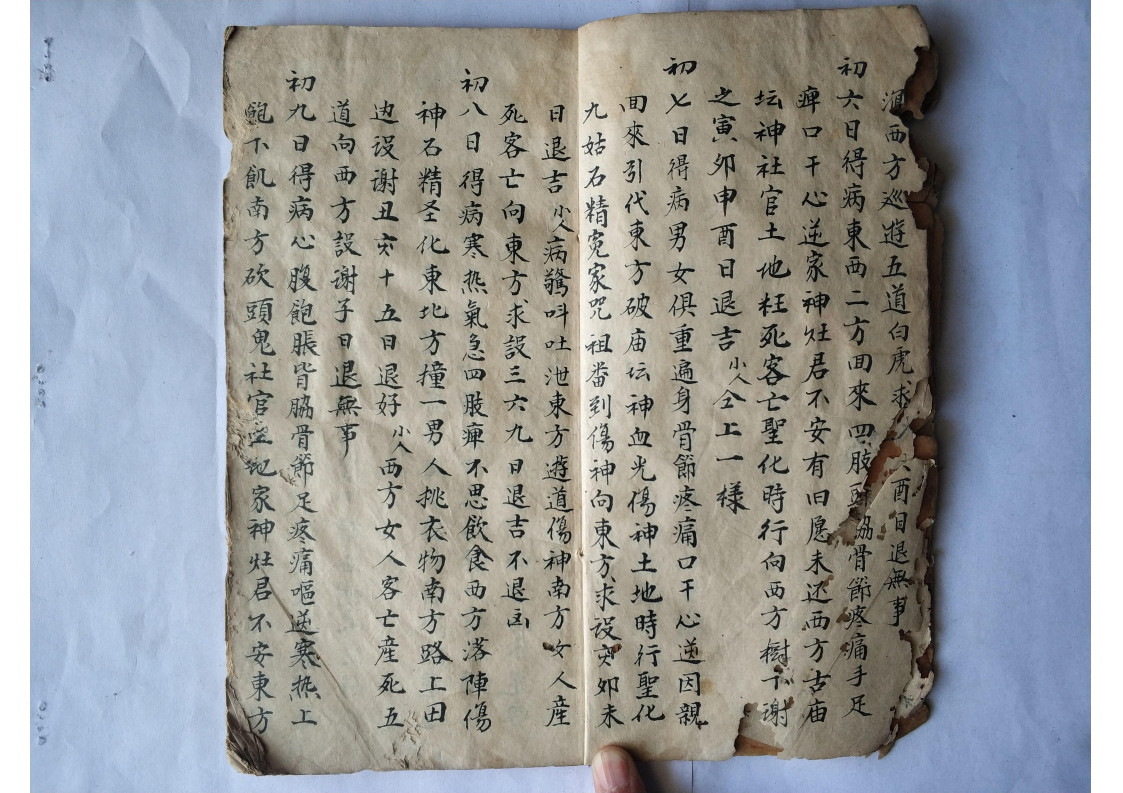 西方巡遊五道白虎求 酉日退無事
初六日得病東西二方回來四肢 骨節疼痛手足
痺口干心逆家神灶君不安有旧愿未还西方古庙
坛神社官土地枉死客亡聖化時行向西方樹下謝
之寅卯申酉日退吉小人仝上一様
初七日得病男女俱重遍身骨節疼痛口干心逆因親
回來引代東方破庙坛神血光傷神土地時行聖化
九姑石精冤家咒祖畨到傷神向東方求設亥卯未
日退吉小人病驚呌吐泄東方遊道傷神南方女人産
死客亡向東方求設三六九日退吉不退凶
初八日得病寒热氣急四肢痺不思飲食西方落陣傷
神石精圣化東北方撞一男人挑衣物南方路上田
边设谢丑亥十五日退好小人西方女人客亡産死五
道向西方設谢子日退無事
初九日得病心腹飽脹背脇骨節足疼痛嘔逆寒热上
飽下飢南方砍頭鬼社官 家神灶君不安東方